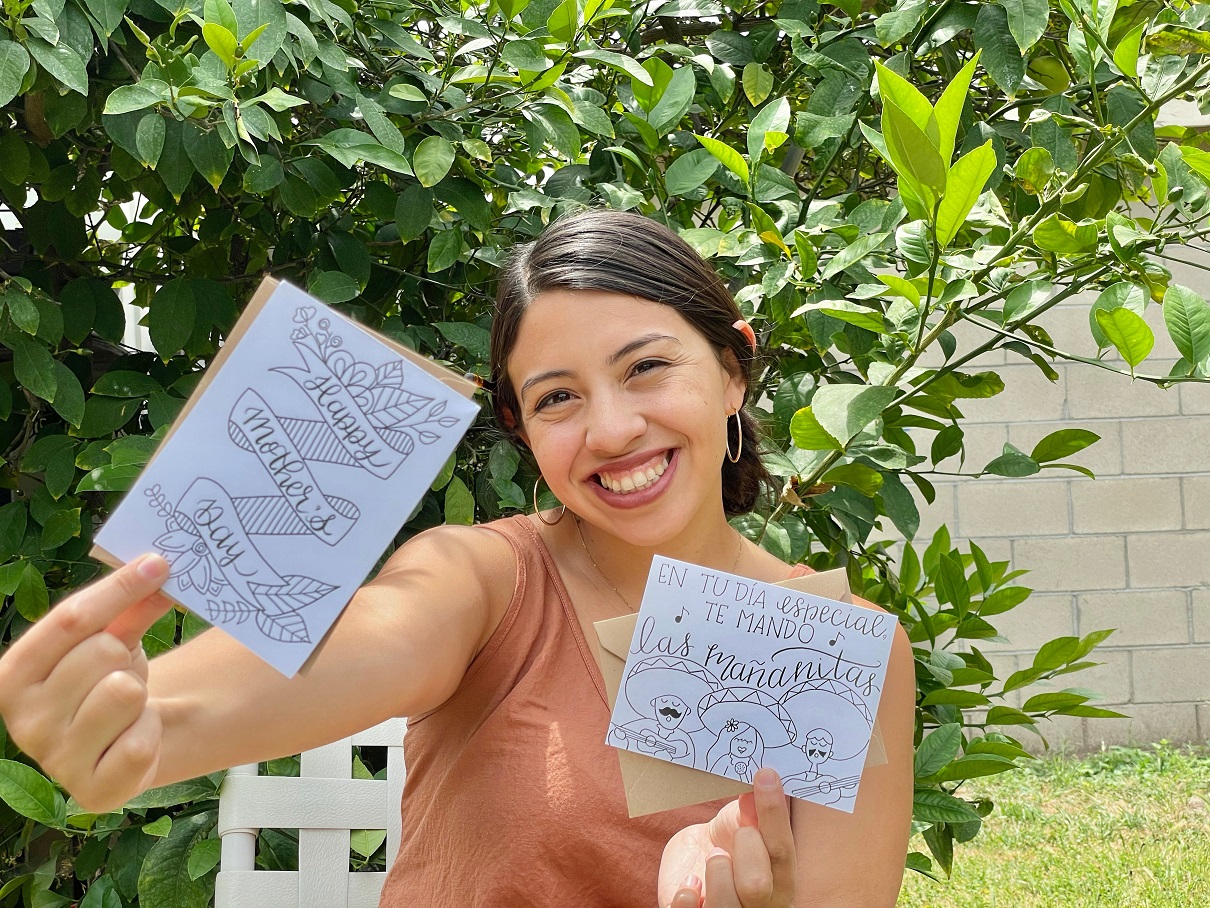 Happy
Mother's
Day
EN TU DÍA especial,
TE MANDO
las mañanitas